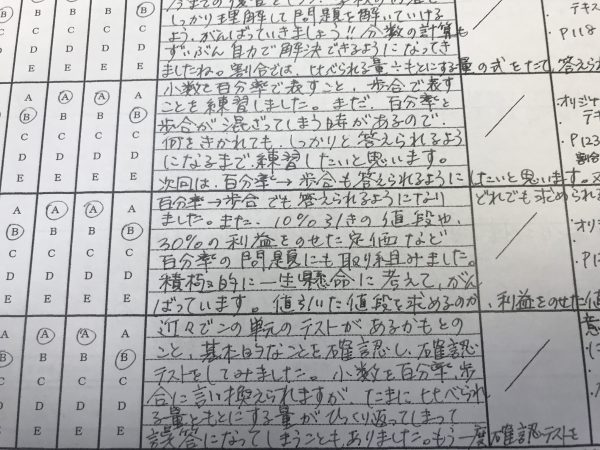 しっかり理解して問題を解いていける
よう、がんばっていきましょう!! 分数の計算も
ずいぶん自力で解決できるようになってき
ましたね。割合では、比べられる量÷もとにする量の式をたて、答えら
小数を百分率で表すこと、歩合で表す
ことを練習しました。まだ、百分率と
歩合が混ざってしまう時があるので、
何をきかれても、しっかりと答えられるよう
になるまで、練習したいと思います。
次回は、百分率→歩合も答えられるようにしたいと思います。
百分率→歩合でも答えられるようになり どれでも求められる
ました。また、10%引きの値段や、
30%の利益をのせた定価など
百分率の問題にも取り組みました。
積極的に一生懸命に考えて、がん
ばっています。値引いた値段を求めるのが、利益をのせた値
近々でこの単元のテストがあるかもとの
こと、基本的なことを確認し、確認
テストをしてみました。小数を百分率、歩
合に言い換えられますが、たまに比べられ
る量ともとにする量がひっくり返ってしまって
誤答になってしまうこともありました。もう一度確認テストを
テキス
P118
オリジナ
テキ
P123
割合
A B C D E
A B C D E
A B C D E